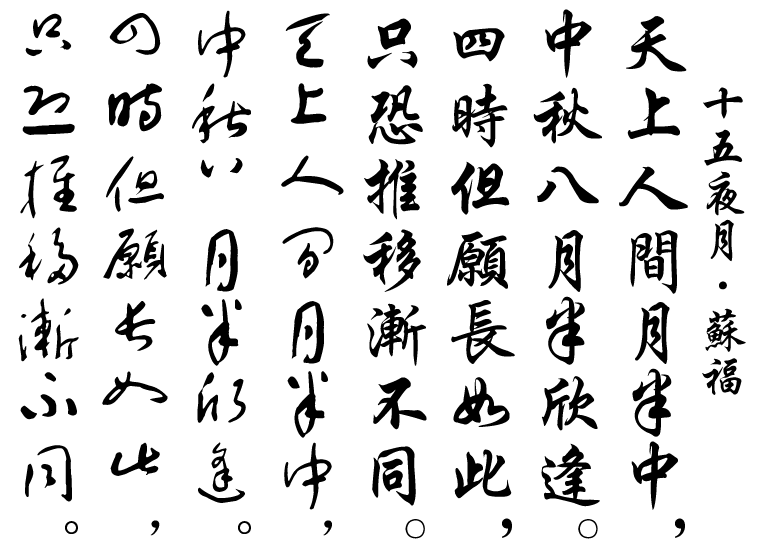 十五夜月・蘇福
天上人間月半中，
中秋八月半欣逢。
四時但願長如此，
只恐推移漸不同。
天上人間月半中，
中秋八月半欣逢。
四時但願長如此，
只恐推移漸不同。